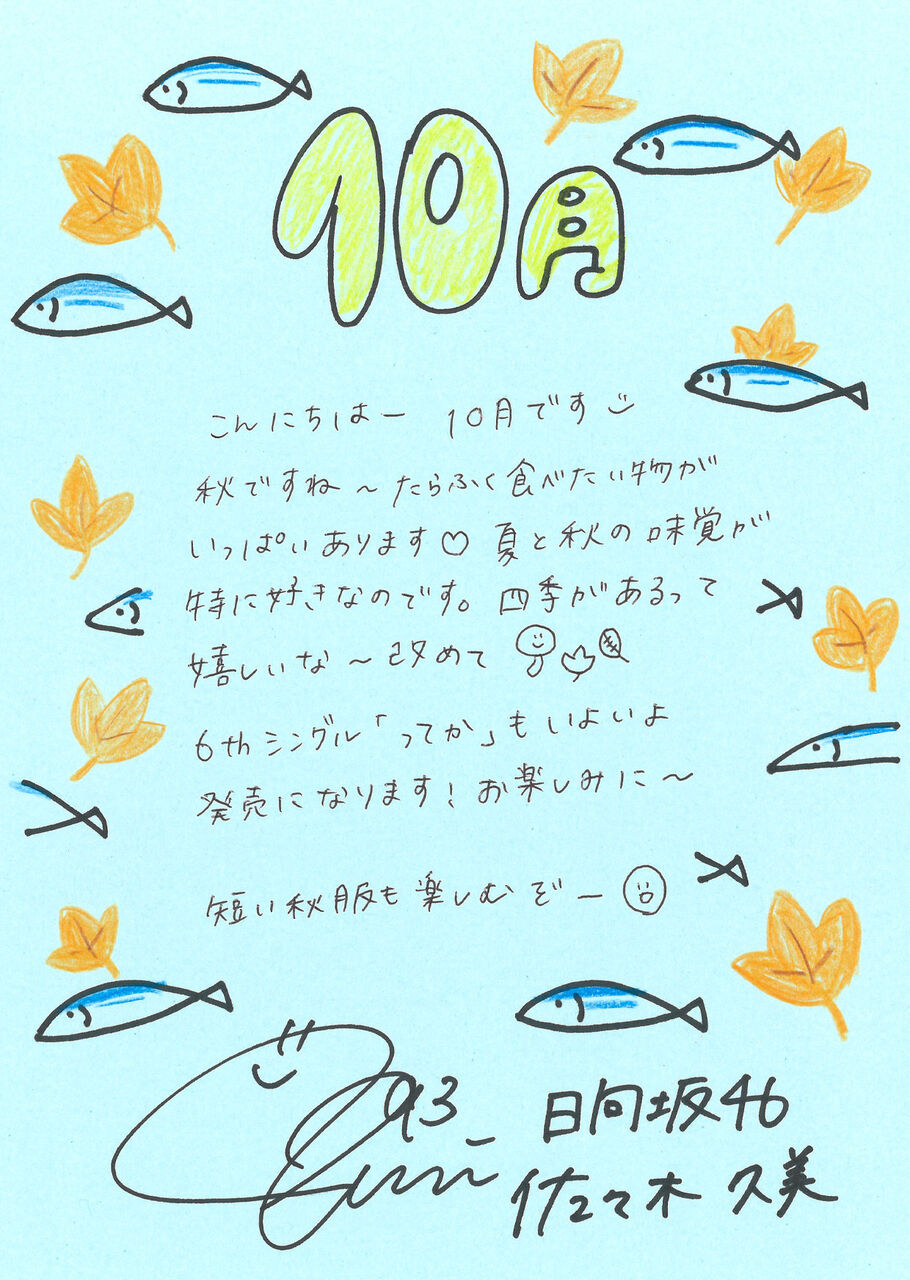 10月
こんにちはー 10月です
秋ですね〜たらふく食べたい物が
いっぱいあります♡ 夏と秋の味覚が
特に好きなのです。四季があるって
嬉しいな〜改めて
6thシングル「ってか」もいよいよ
発売になります! お楽しみに〜
短い秋服も楽しむぞー
93
日向坂46
佐々木 久美